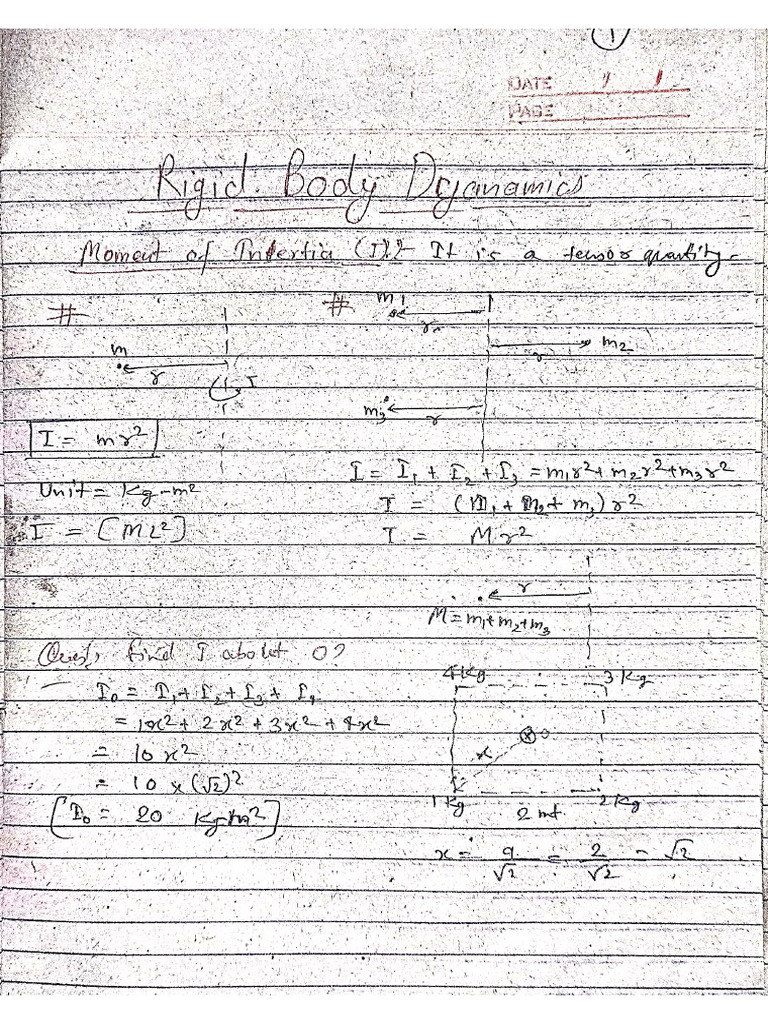 1
DATE
PAGE
Rigid Body Dyanamics
Moment of Intertia (I):- It is a tensor quantity.
#
m
r
I
I = mr²
Unit = Kg-m²
I = [ML²]
#
m1
r
r
m2
m3
r
I = I₁ + I₂ + I₃ = m₁r² + m₂r² + m₃r²
I = (m₁ + m₂ + m₃) r²
I = Mr²
r
M = m₁ + m₂ + m₃
Ques, find I about O?
I₀ = I₁ + I₂ + I₃ + I₄
= 1x² + 2x² + 3x² + 4x²
= 10x²
= 10 x (√2)²
[I₀ = 20 Kg-m²]
4 Kg
3 Kg
O
x
1 Kg
2 Kg
2 mt
x = a/√2 = 2/√2 = √2